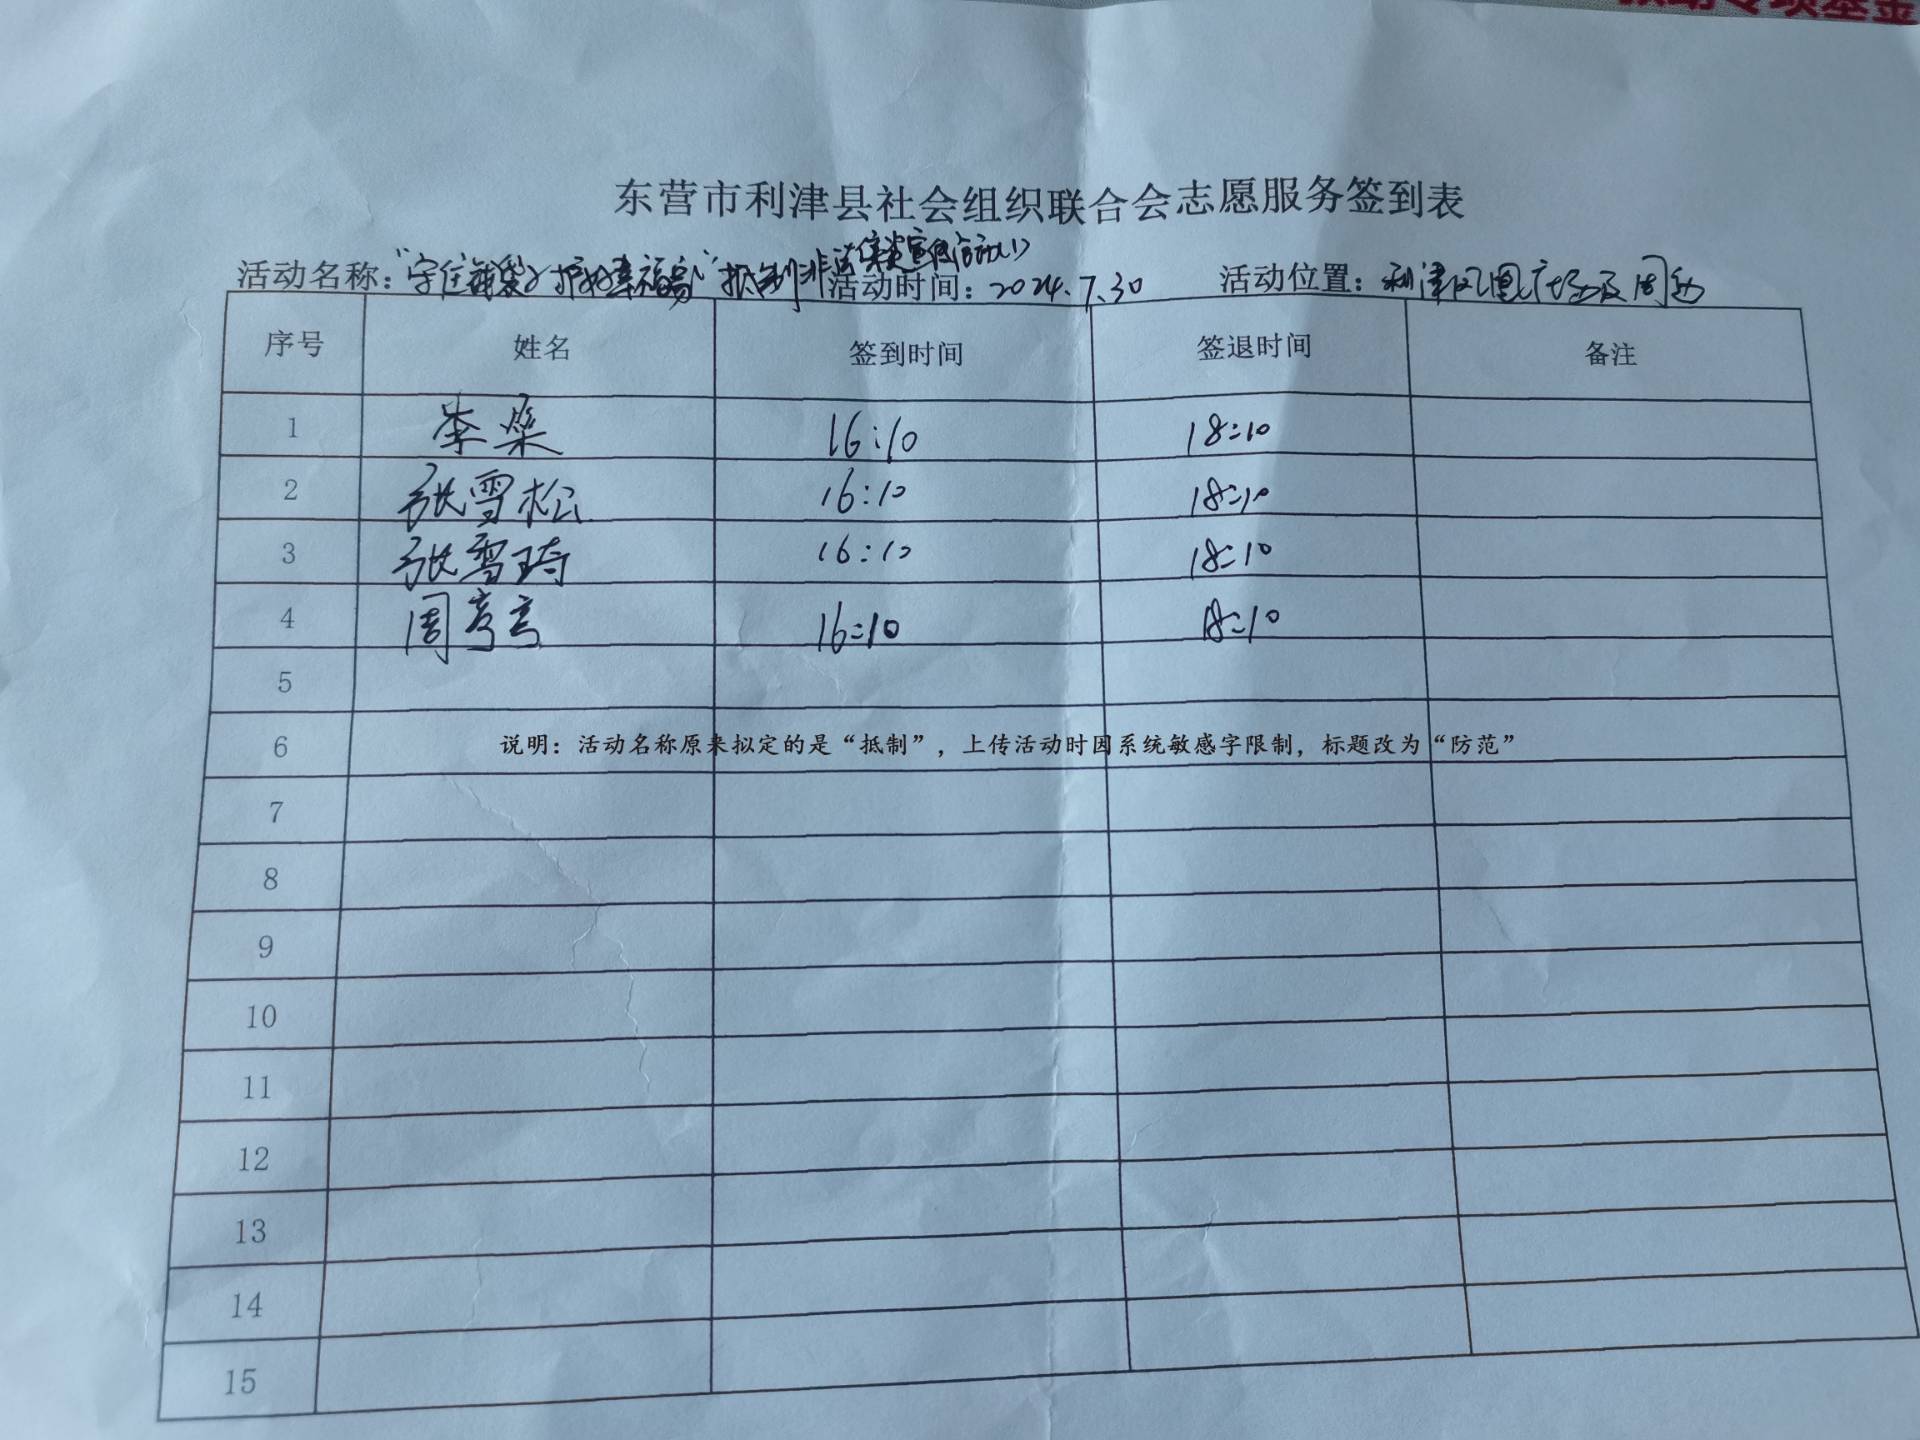 专项基金
东营市利津县社会组织联合会志愿服务签到表
活动名称：“守住钱袋子护好幸福家”抵制非法集资宣传活动(1) 活动时间：2024.7.30 活动位置：利津凤凰广场及周边
序号 姓名 签到时间 签退时间 备注
1 李燊 16:10 18:10
2 张雪松 16:10 18:10
3 张雪琦 16:10 18:10
4 周 16:10 18:10
5
6 说明：活动名称原来拟定的是“抵制”，上传活动时因系统敏感字限制，标题改为“防范”
7
8
9
10
11
12
13
14
15